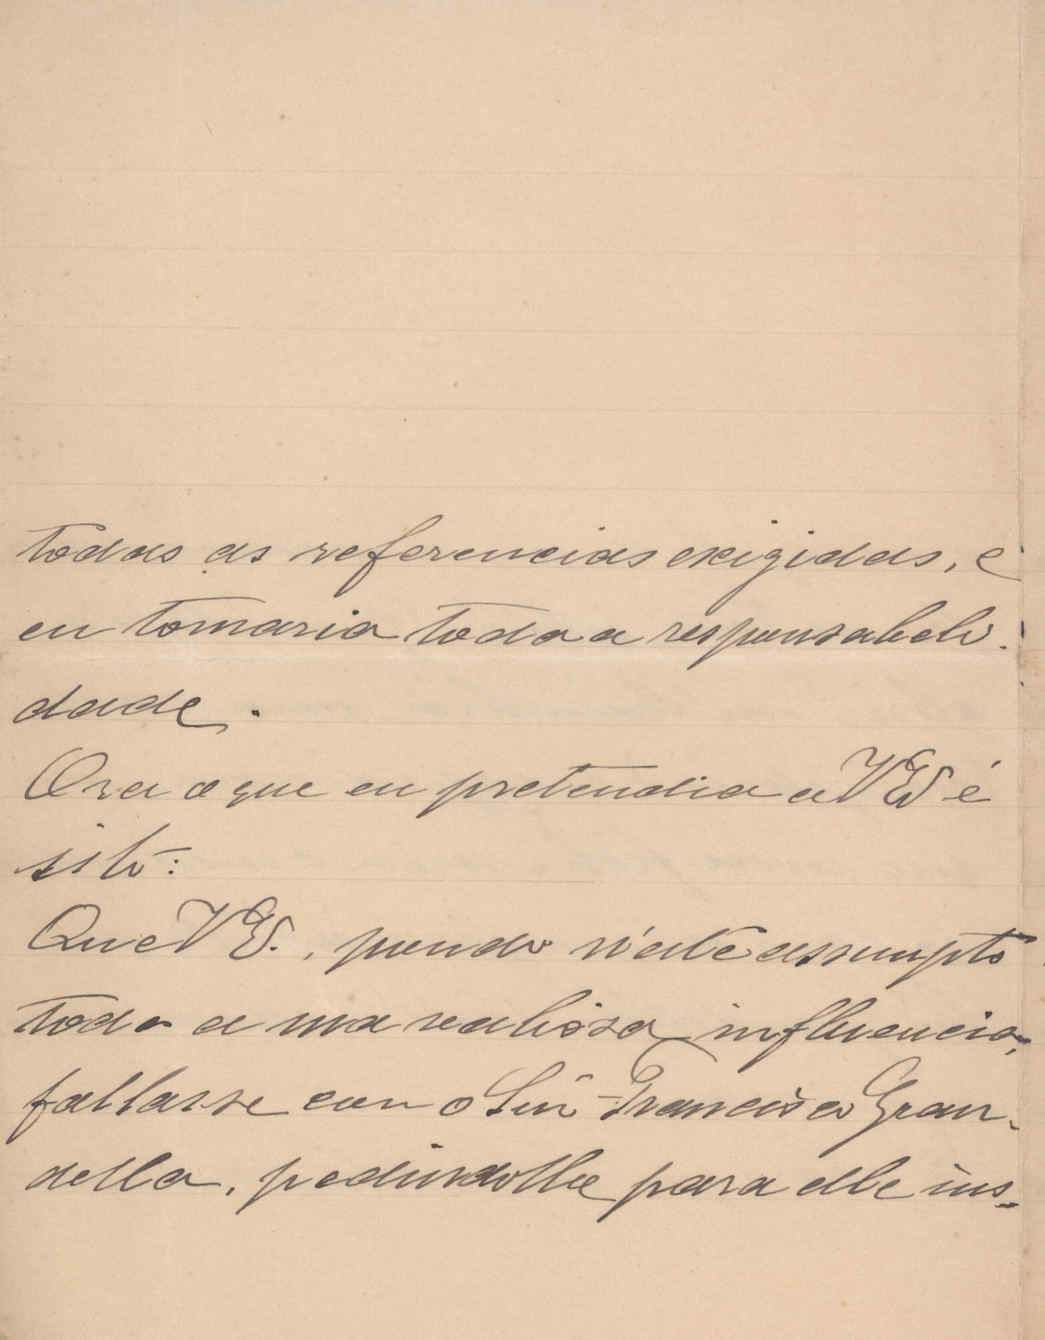 todas as referencias exigidas, e
eu tomaria toda a responsabeli-
dade.
Ora o que eu pretendia a V Eª é
isto:
Que V Eª., pondo n'este assumpto
toda a sua valiosa influencia,
fallasse com o Snr Francisco Gran-
della, pedindo lhe para elle ins-